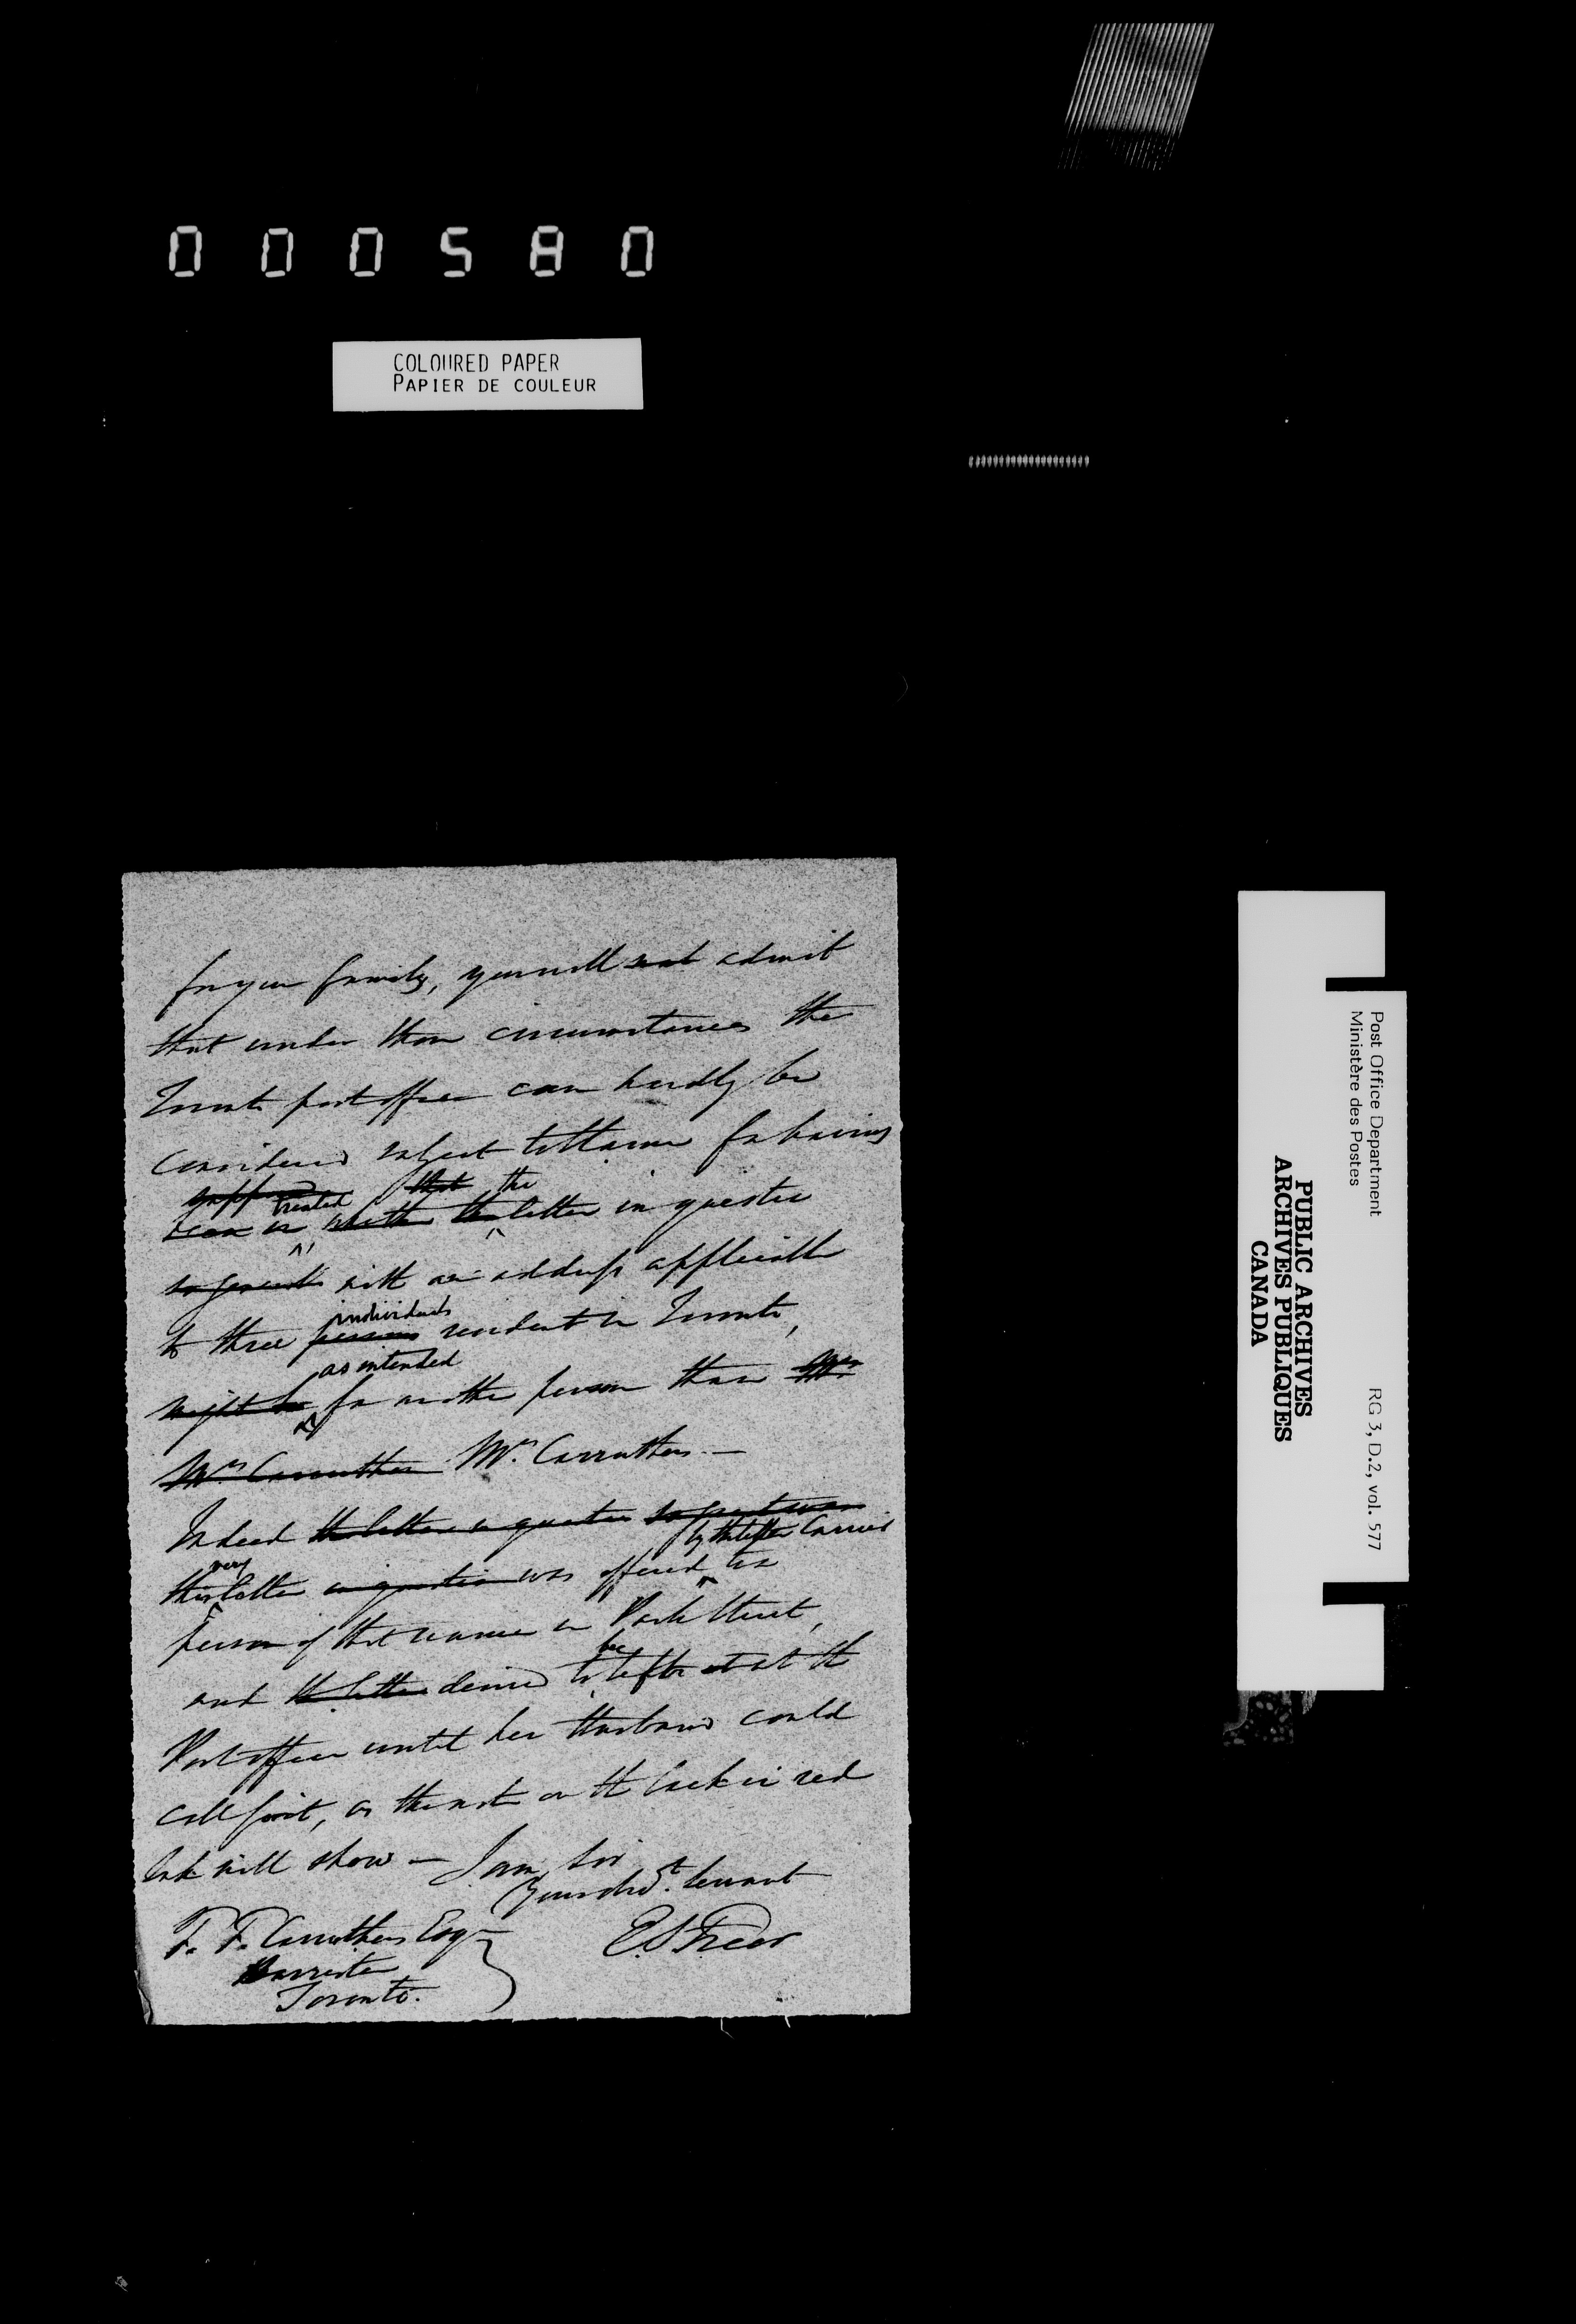 000580
COLOURED PAPER
PAPIER DE COULEUR
for your family, you will admit
that under these circumstances the
Toronto post office can hardly be
considered subject to blame for having
treated the letter in question
with an address applicable
to three individuals resident in Toronto,
as intended
for another person than
Mrs Carruthers Mrs. Carruthers. —
Indeed the letter in question
by the letter Carrier
this very letter in question was offered to a
person of that name in Park Street,
and the letter desired to be left at the
Post office until her Husband could
call for it, as the note on the back in red
Ink will show — I am, Sir
Your obdt. servant
F. F. Carruthers Esq
E.S. Freer
Barrister
Toronto.
Post Office Department
Ministère des Postes
RG 3, D.2, vol. 577
PUBLIC ARCHIVES
ARCHIVES PUBLIQUES
CANADA